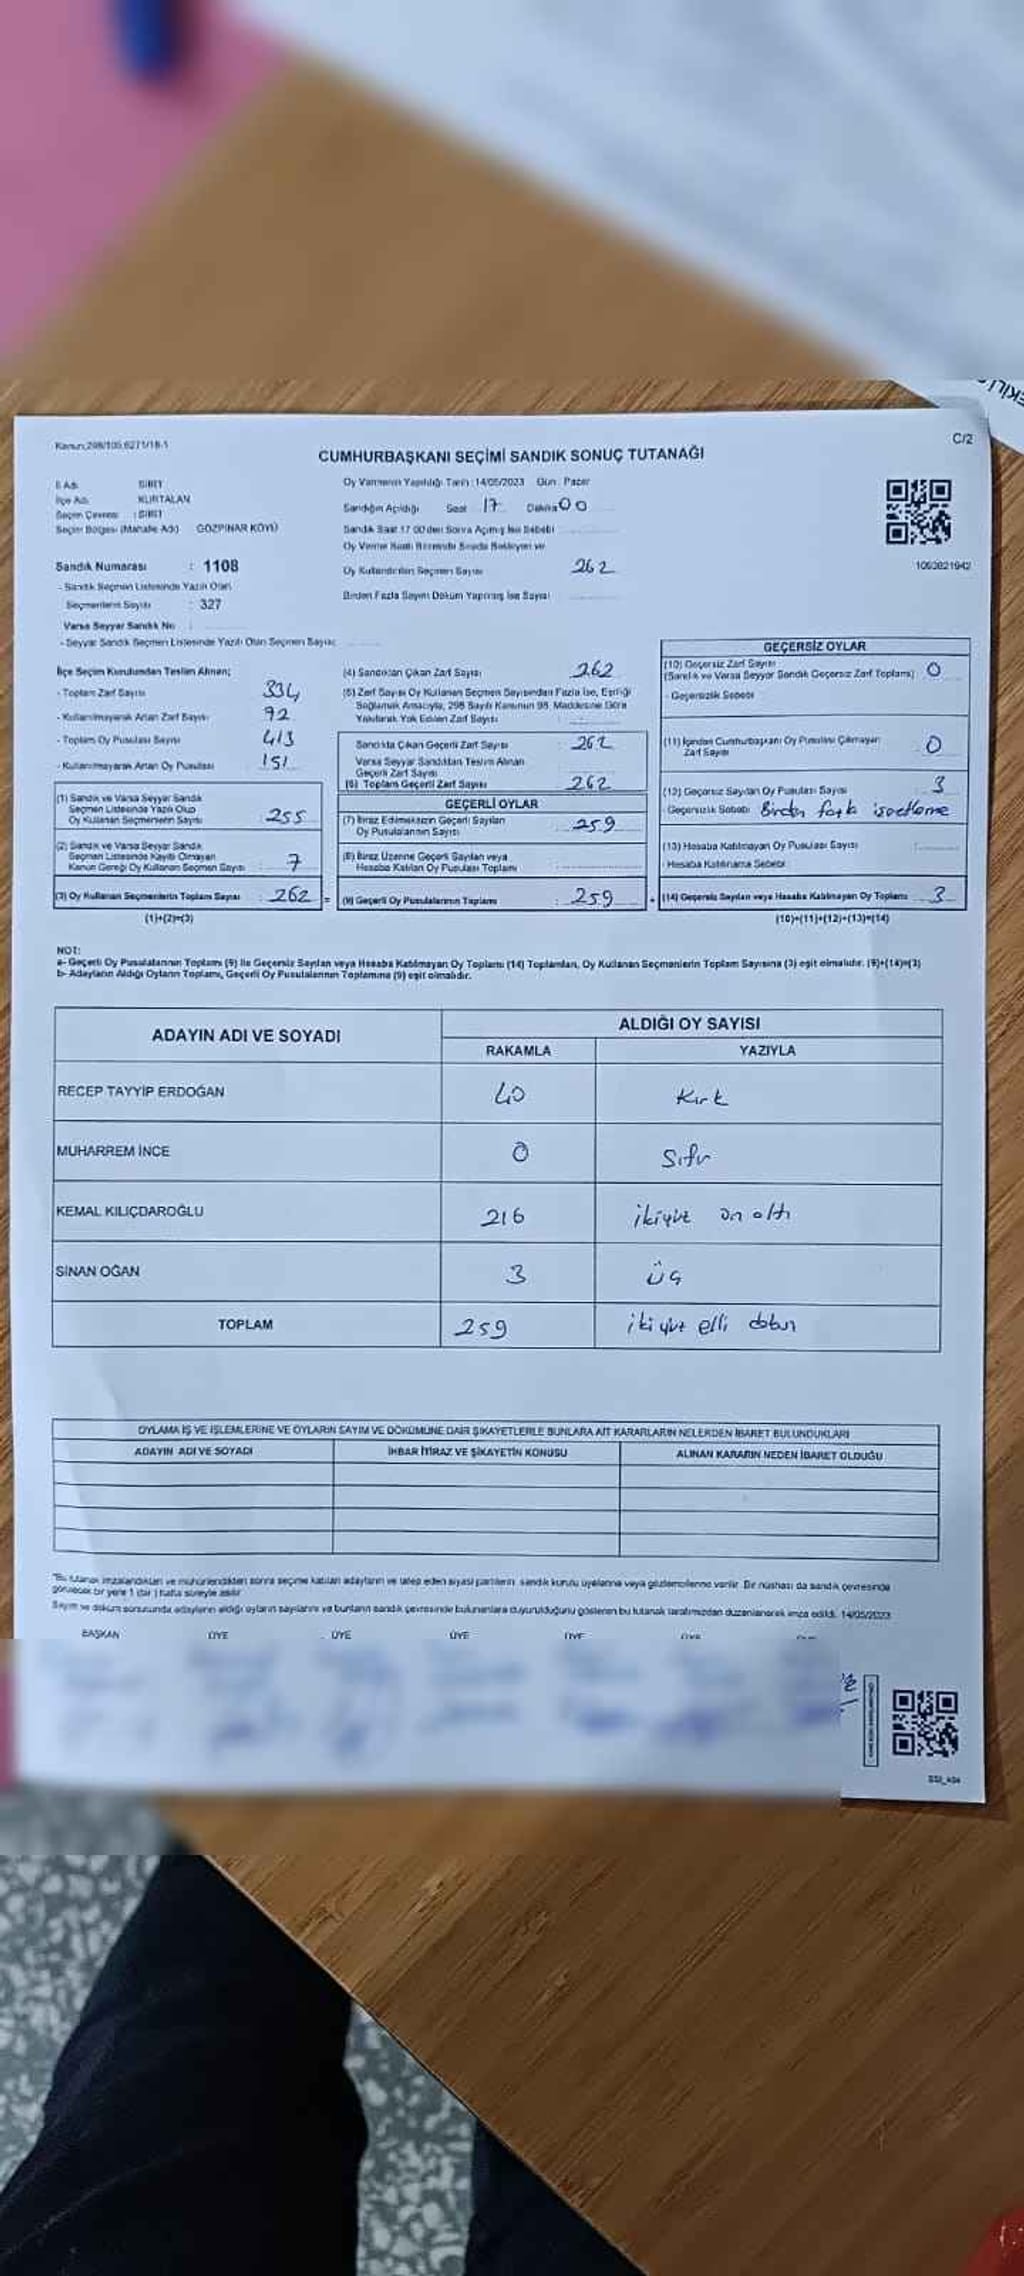 Kanun:298/105,6271/18-1
C/2
CUMHURBAŞKANI SEÇİMİ SANDIK SONUÇ TUTANAĞI
İl Adı : SİİRT
İlçe Adı : KURTALAN
Seçim Çevresi : SİİRT
Seçim Bölgesi (Mahalle Adı) GÖZPINAR KÖYÜ
Sandık Numarası : 1108
- Sandık Seçmen Listesinde Yazılı Olan
Seçmenlerin Sayısı : 327
Varsa Seyyar Sandık No :
- Seyyar Sandık Seçmen Listesinde Yazılı Olan Seçmen Sayısı:
Oy Vermenin Yapıldığı Tarih : 14/05/2023 Gün : Pazar
Sandığın Açıldığı Saat 17 Dakika 00
Sandık Saat 17:00'den Sonra Açılmış İse Sebebi
Oy Verme Saati Bitiminde Sırada Bekleyen ve
Oy Kullandırılan Seçmen Sayısı 262
Birden Fazla Sayım Döküm Yapılmış İse Sayısı
1093821942
İlçe Seçim Kurulundan Teslim Alınan;
- Toplam Zarf Sayısı 334
- Kullanılmayarak Artan Zarf Sayısı 92
- Toplam Oy Pusulası Sayısı 413
- Kullanılmayarak Artan Oy Pusulası 151
(1) Sandık ve Varsa Seyyar Sandık
Seçmen Listesinde Yazılı Olup
Oy Kullanan Seçmenlerin Sayısı 255
(2) Sandık ve Varsa Seyyar Sandık
Seçmen Listesinde Kayıtlı Olmayan
Kanun Gereği Oy Kullanan Seçmen Sayısı 7
(3) Oy Kullanan Seçmenlerin Toplam Sayısı : 262 =
(1)+(2)=(3)
(4) Sandıktan Çıkan Zarf Sayısı 262
(5) Zarf Sayısı Oy Kullanan Seçmen Sayısından Fazla İse, Eşitliği
Sağlamak Amacıyla, 298 Sayılı Kanunun 98. Maddesine Göre
Yakılarak Yok Edilen Zarf Sayısı
Sandıkta Çıkan Geçerli Zarf Sayısı 262
Varsa Seyyar Sandıktan Teslim Alınan
Geçerli Zarf Sayısı
(6) Toplam Geçerli Zarf Sayısı 262
GEÇERLİ OYLAR
(7) İtiraz Edilmeksizin Geçerli Sayılan
Oy Pusulalarının Sayısı 259
(8) İtiraz Üzerine Geçerli Sayılan veya
Hesaba Katılan Oy Pusulası Toplamı
(9) Geçerli Oy Pusulalarının Toplamı : 259 +
GEÇERSİZ OYLAR
(10) Geçersiz Zarf Sayısı
(Sandık ve Varsa Seyyar Sandık Geçersiz Zarf Toplamı) 0
- Geçersizlik Sebebi
(11) İçinden Cumhurbaşkanı Oy Pusulası Çıkmayan
Zarf Sayısı 0
(12) Geçersiz Sayılan Oy Pusulası Sayısı 3
- Geçersizlik Sebebi Birden fazla işaretleme
(13) Hesaba Katılmayan Oy Pusulası Sayısı
- Hesaba Katılmama Sebebi
(14) Geçersiz Sayılan veya Hesaba Katılmayan Oy Toplamı 3
(10)+(11)+(12)+(13)=(14)
NOT:
a- Geçerli Oy Pusulalarının Toplamı (9) İle Geçersiz Sayılan veya Hesaba Katılmayan Oy Toplamı (14) Toplamları, Oy Kullanan Seçmenlerin Toplam Sayısına (3) eşit olmalıdır. (9)+(14)=(3)
b- Adayların Aldığı Oyların Toplamı, Geçerli Oy Pusulalarının Toplamına (9) eşit olmalıdır.
ADAYIN ADI VE SOYADI
ALDIĞI OY SAYISI
RAKAMLA YAZIYLA
RECEP TAYYİP ERDOĞAN 40 Kırk
MUHARREM İNCE 0 Sıfır
KEMAL KILIÇDAROĞLU 216 ikiyüz on altı
SİNAN OĞAN 3 üç
TOPLAM 259 iki yüz elli dokuz
OYLAMA İŞ VE İŞLEMLERİNE VE OYLARIN SAYIM VE DÖKÜMÜNE DAİR ŞİKAYETLERLE BUNLARA AİT KARARLARIN NELERDEN İBARET BULUNDUKLARI
ADAYIN ADI VE SOYADI İHBAR İTİRAZ VE ŞİKAYETİN KONUSU ALINAN KARARIN NEDEN İBARET OLDUĞU
"Bu tutanak imzalandıktan ve mühürlendikten sonra seçime katılan adayların ve talep eden siyasi partilerin sandık kurulu üyelerine veya gözlemcilerine verilir. Bir nüshası da sandık çevresinde
görülecek bir yere 1 (bir ) hafta süreyle asılır.
Sayım ve döküm sonucunda adayların aldığı oyların sayılarını ve bunların sandık çevresinde bulunanlara duyurulduğunu gösteren bu tutanak tarafımızdan düzenlenerek imza edildi. 14/05/2023
BAŞKAN ÜYE ÜYE ÜYE ÜYE ÜYE